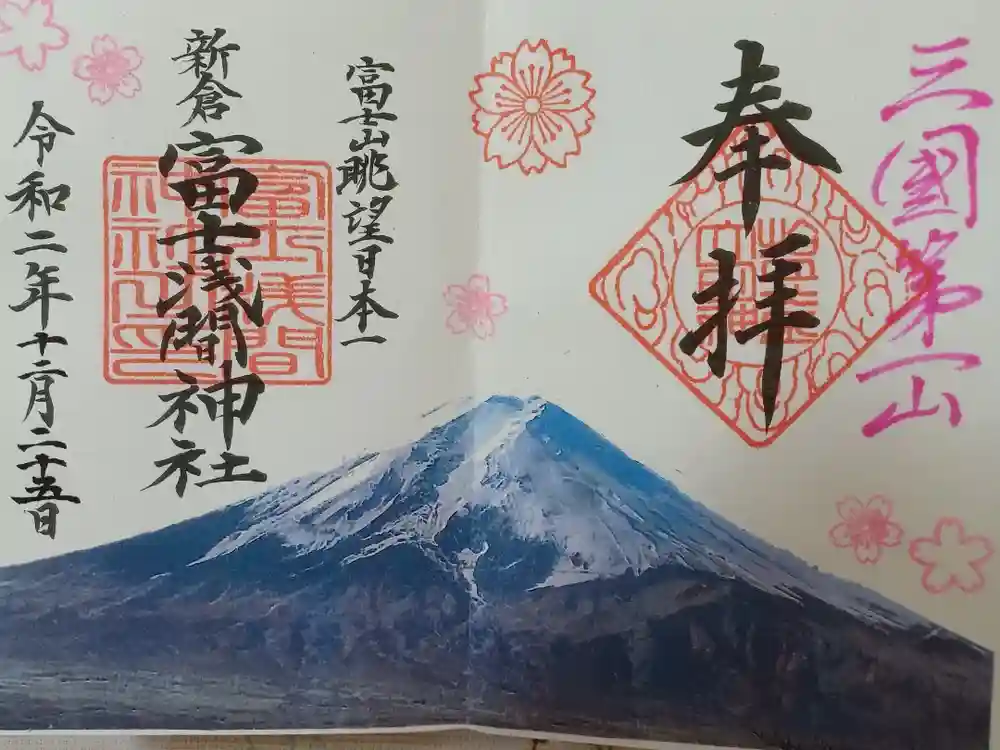 三國第一山
奉拝
富士山眺望日本一
新倉
富士浅間神社
富士浅間
神社之印
令和二年十二月二十五日